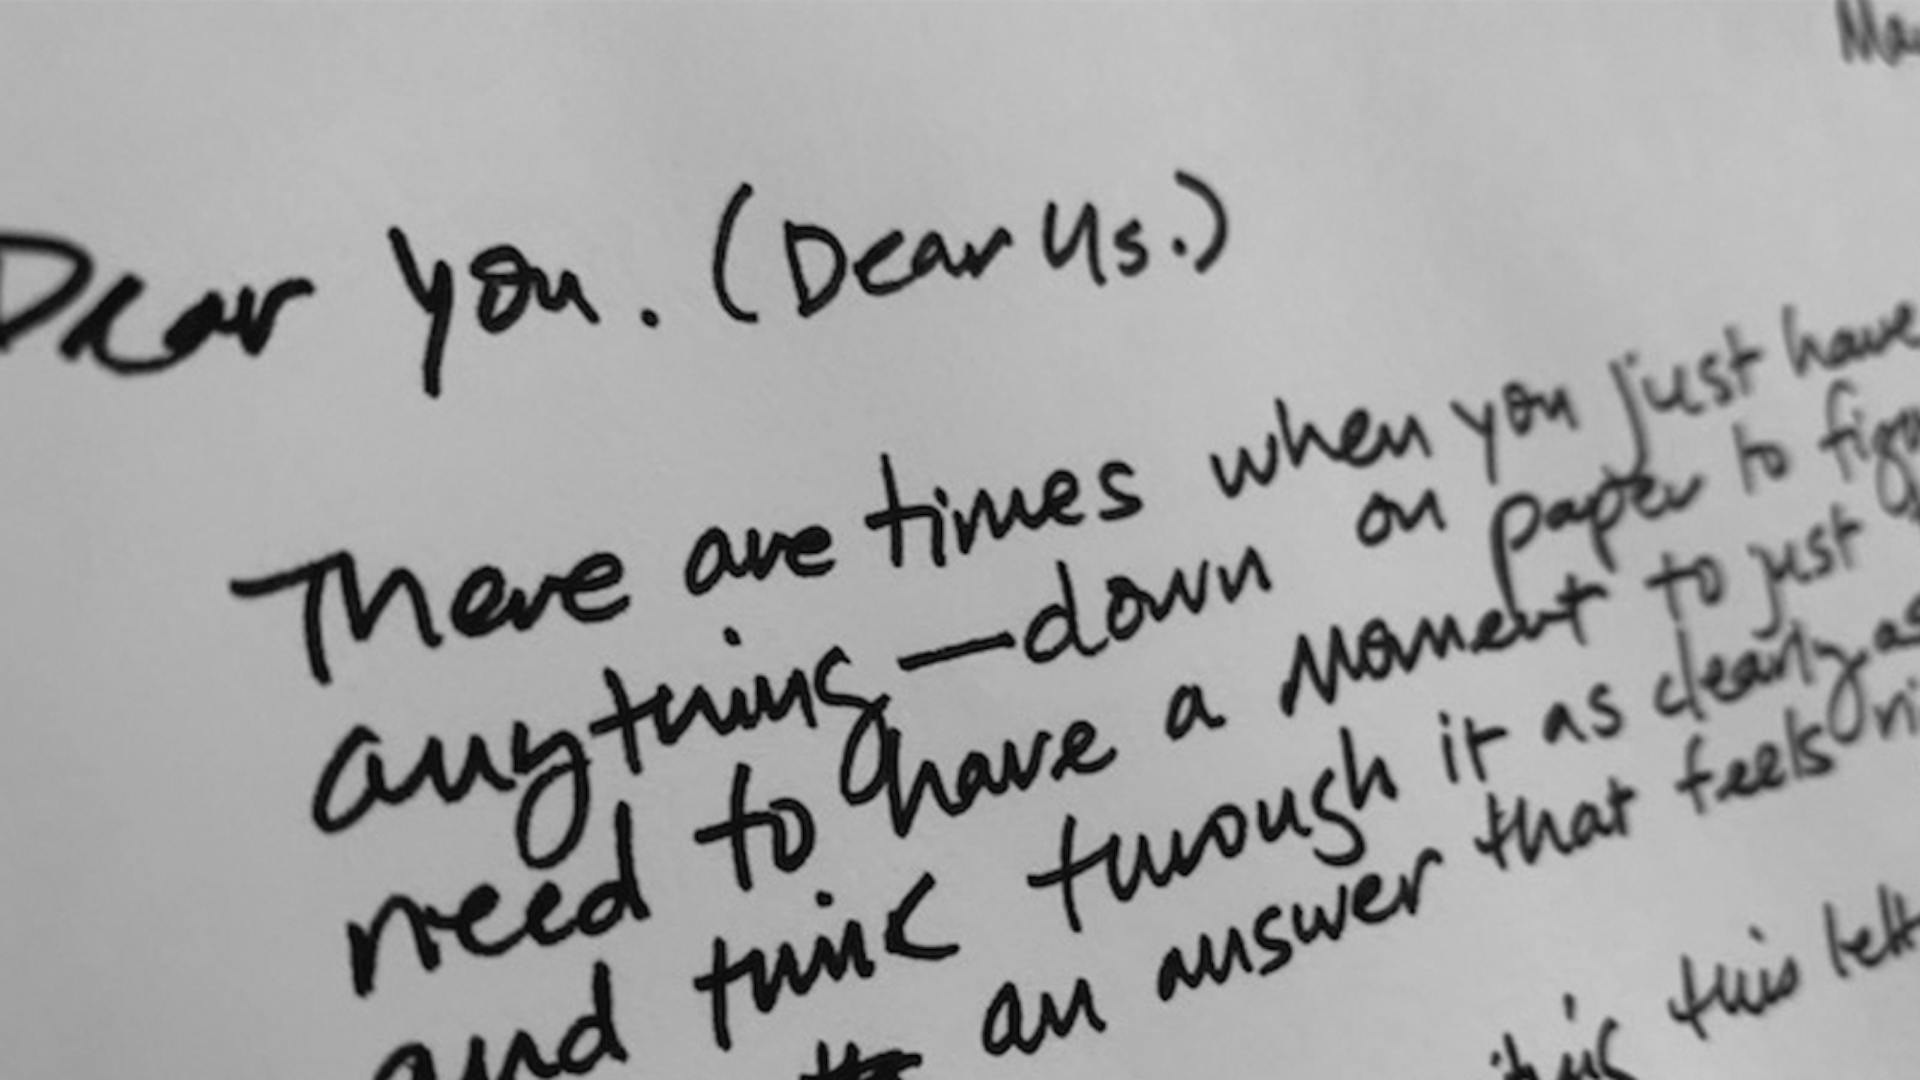 Dear You. (Dear Us.)
There are times when you just have
anything—down on paper to
need to have a moment to just
and think through it as clearly, as
an answer that feels
this